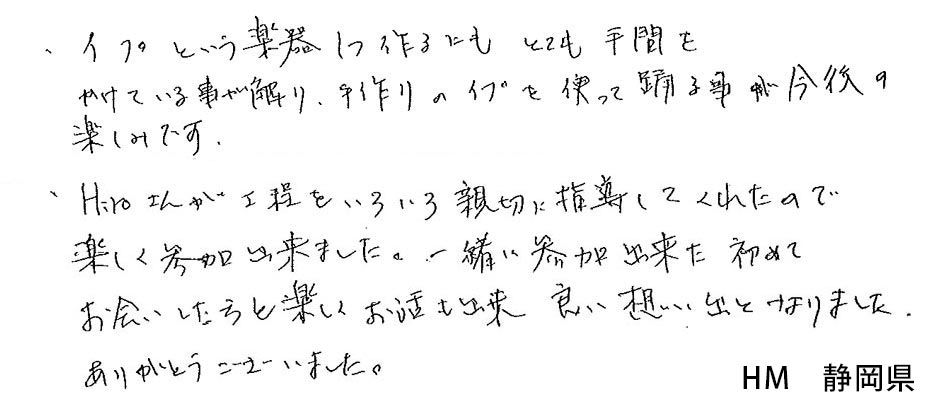 ・イプという楽器1つ作るにもとても手間を
かけている事が解り、手作りのイプを使って踊る事が今後の
楽しみです.
・Hiroさんが工程をいろいろ親切に指導してくれたので
楽しく参加出来ました。一緒に参加出来た初めて
お会いした方と楽しくお話も出来 良い想い出となりました.
ありがとうございました。
HM 静岡県